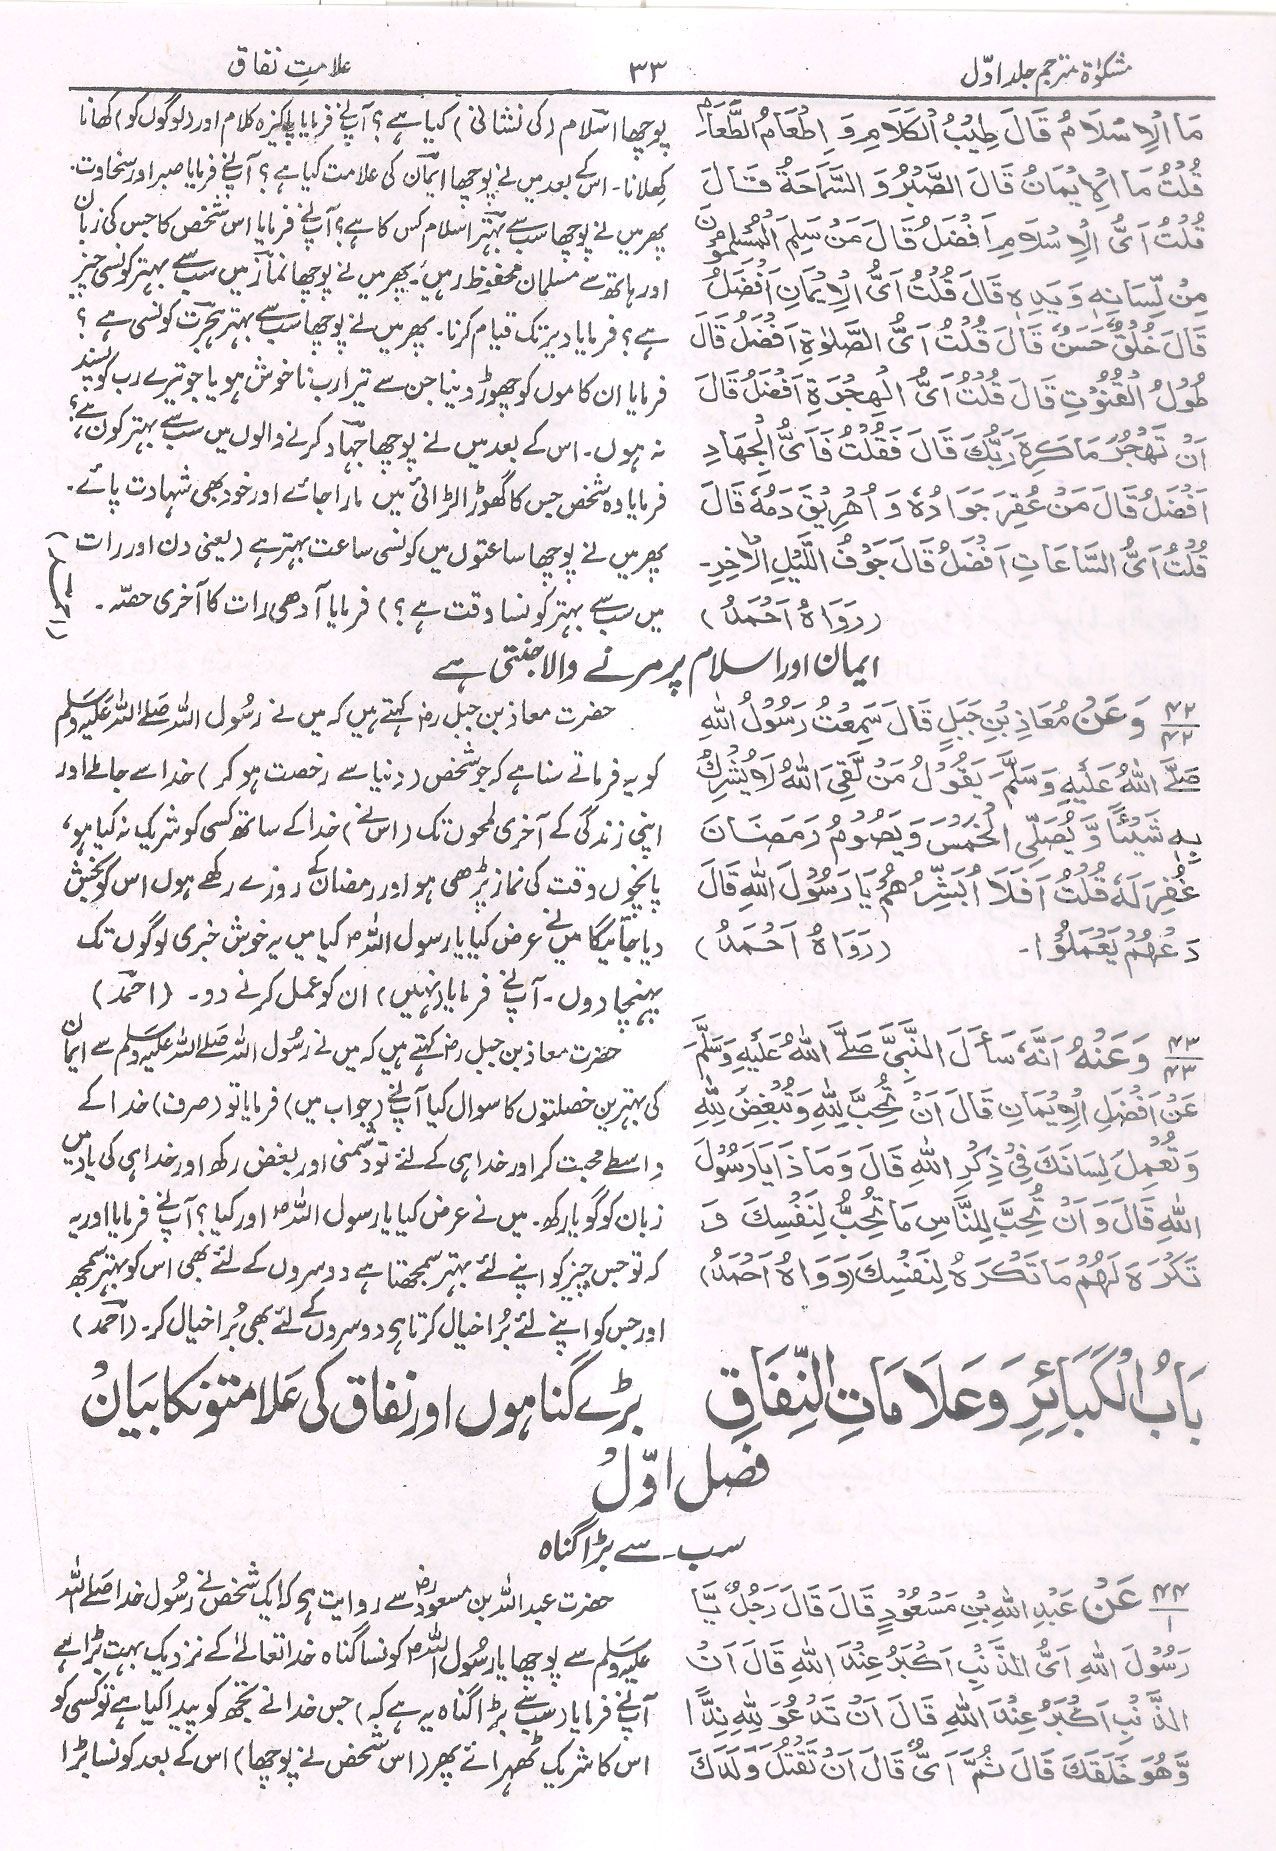 مشکوٰۃ مترجم جلد اوّل
۳۳
علامتِ نفاق
مَا الْاِسْلَامُ قَالَ طِیْبُ الْکَلَامِ وَ اِطْعَامُ الطَّعَامِ
قُلْتُ مَا الْاِیْمَانُ قَالَ الصَّبْرُ وَ السَّمَاحَۃُ قَالَ
قُلْتُ اَیُّ الْاِسْلَامِ اَفْضَلُ قَالَ مَنْ سَلِمَ الْمُسْلِمُوْنَ
مِنْ لِّسَانِہٖ وَ یَدِہٖ قَالَ قُلْتُ اَیُّ الْاِیْمَانِ اَفْضَلُ
قَالَ خُلُقٌ حَسَنٌ قَالَ قُلْتُ اَیُّ الصَّلٰوۃِ اَفْضَلُ قَالَ
طُوْلُ الْقُنُوْتِ قَالَ قُلْتُ اَیُّ الْہِجْرَۃِ اَفْضَلُ قَالَ
اَنْ تَہْجُرَ مَا کَرِہَ رَبُّکَ قَالَ فَقُلْتُ فَاَیُّ الْجِہَادِ
اَفْضَلُ قَالَ مَنْ عُقِرَ جَوَادُہٗ وَ اُہْرِیْقَ دَمُہٗ قَالَ
قُلْتُ اَیُّ السَّاعَاتِ اَفْضَلُ قَالَ جَوْفُ اللَّیْلِ الْاٰخِرِ۔
(رَوَاہُ اَحْمَدُ)
پوچھا اسلام (کی نشانی) کیا ہے؟ آپ نے فرمایا پاکیزہ کلام اور (لوگوں کو) کھانا
کھلانا۔ اس کے بعد میں نے پوچھا ایمان کی علامت کیا ہے؟ آپ نے فرمایا صبر اور سخاوت۔
پھر میں نے پوچھا سب سے بہتر اسلام کس کا ہے؟ آپ نے فرمایا اس شخص کا جس کی زبان
اور ہاتھ سے مسلمان محفوظ رہیں۔ پھر میں نے پوچھا نماز میں سب سے بہتر کونسی چیز
ہے؟ فرمایا دیر تک قیام کرنا۔ پھر میں نے پوچھا سب سے بہتر ہجرت کونسی ہے؟
فرمایا ان کاموں کو چھوڑ دینا جن سے تیرا رب ناخوش ہو یا جو تیرے رب کو پسند
نہ ہوں۔ اس کے بعد میں نے پوچھا جہاد کرنے والوں میں سب سے بہتر کون ہے؟
فرمایا وہ شخص جس کا گھوڑا لڑائی میں مارا جائے اور خود بھی شہادت پائے۔
پھر میں نے پوچھا ساعتوں میں کونسی ساعت بہتر ہے (یعنی دن اور رات
میں سب سے بہتر کونسا وقت ہے؟) فرمایا آدھی رات کا آخری حصّہ۔
ایمان اور اسلام پر مرنے والا جنتی ہے
۴۲/۴۲ وَعَنْ مُعَاذِ بْنِ جَبَلٍ قَالَ سَمِعْتُ رَسُوْلَ اللّٰہِ
صَلَّے اللّٰہُ عَلَیْہِ وَسَلَّمَ یَقُوْلُ مَنْ لَّقِیَ اللّٰہَ لَا یُشْرِکُ
بِہٖ شَیْئًا وَّ یُصَلِّی الْخَمْسَ وَ یَصُوْمُ رَمَضَانَ
غُفِرَ لَہٗ قُلْتُ اَفَلَا اُبَشِّرُہُمْ یَا رَسُوْلَ اللّٰہِ قَالَ
دَعْہُمْ یَعْمَلُوْا۔ (رَوَاہُ اَحْمَدُ)
حضرت معاذ بن جبل رضؓ کہتے ہیں کہ میں نے رسُول اللہ صلے اللہ علیہ وسلم
کو یہ فرماتے سنا ہے کہ جو شخص (دنیا سے رخصت ہو کر) خدا سے جا ملے اور
اپنی زندگی کے آخری لمحوں تک (اس نے) خدا کے ساتھ کسی کو شریک نہ کیا ہو،
پانچوں وقت کی نماز پڑھی ہو اور رمضان کے روزے رکھے ہوں اس کو بخش
دیا جائیگا میں نے عرض کیا یا رسول اللہ کیا میں یہ خوش خبری لوگوں تک
پہنچا دوں۔ آپ نے فرمایا (نہیں) ان کو عمل کرنے دو۔ (احمد)
۴۳/۴۳ وَعَنْہُ اَنَّہٗ سَاَلَ النَّبِیَّ صَلَّے اللّٰہُ عَلَیْہِ وَسَلَّمَ
عَنْ اَفْضَلِ الْاِیْمَانِ قَالَ اَنْ تُحِبَّ لِلّٰہِ وَتُبْغِضَ لِلّٰہِ
وَتُعْمِلَ لِسَانَکَ فِیْ ذِکْرِ اللّٰہِ قَالَ وَمَا ذَا یَا رَسُوْلَ
اللّٰہِ قَالَ وَ اَنْ تُحِبَّ لِلنَّاسِ مَا تُحِبُّ لِنَفْسِکَ وَ
تَکْرَہَ لَہُمْ مَا تَکْرَہُ لِنَفْسِکَ (رَوَاہُ اَحْمَدُ)
حضرت معاذ بن جبل رضؓ کہتے ہیں کہ میں نے رسُول اللہ صلے اللہ علیہ وسلم سے ایمان
کی بہترین خصلتوں کا سوال کیا آپ نے (جواب میں) فرمایا تو (صرف) خدا کے
واسطے محبت کر اور خدا ہی کے لئے تو دشمنی اور بغض رکھ اور خدا ہی کی یاد میں
زبان کو گویا رکھ۔ میں نے عرض کیا یا رسول اللہ اور کیا؟ آپ نے فرمایا اور یہ
کہ تو جس چیز کو اپنے لئے بہتر سمجھتا ہے دوسروں کے لئے بھی اس کو بہتر سمجھ
اور جس کو اپنے لئے بُرا خیال کرتا ہی دوسروں کے لئے بھی بُرا خیال کر۔ (احمد)
بَابُ الْکَبَائِرِ وَ عَلَامَاتِ النِّفَاقِ
بڑے گناہوں اور نفاق کی علامتونکا بیان
فصل اوّل
سب سے بڑا گناہ
۴۴/۱ عَنْ عَبْدِ اللّٰہِ بْنِ مَسْعُوْدٍ قَالَ قَالَ رَجُلٌ یَّا
رَسُوْلَ اللّٰہِ اَیُّ الذَّنْبِ اَکْبَرُ عِنْدَ اللّٰہِ قَالَ اَنْ
الذَّنْبِ اَکْبَرُ عِنْدَ اللّٰہِ قَالَ اَنْ تَدْعُوَ لِلّٰہِ نِدًّا
وَّھُوَ خَلَقَکَ قَالَ ثُمَّ اَیٌّ قَالَ اَنْ تَقْتُلَ وَلَدَکَ
حضرت عبد اللہ بن مسعود رضؓ سے روایت ہی کہ ایک شخص نے رسُول خدا صلے اللہ
علیہ وسلم سے پوچھا یا رسُول اللہ کونسا گناہ خدا تعالےٰ کے نزدیک بہت بڑا ہے
آپ نے فرمایا (سب سے بڑا گناہ یہ ہے کہ) جس خدا نے تجھ کو پیدا کیا ہے تو کسی کو
اس کا شریک ٹھہرائے پھر (اس شخص نے پوچھا) اس کے بعد کونسا بڑا